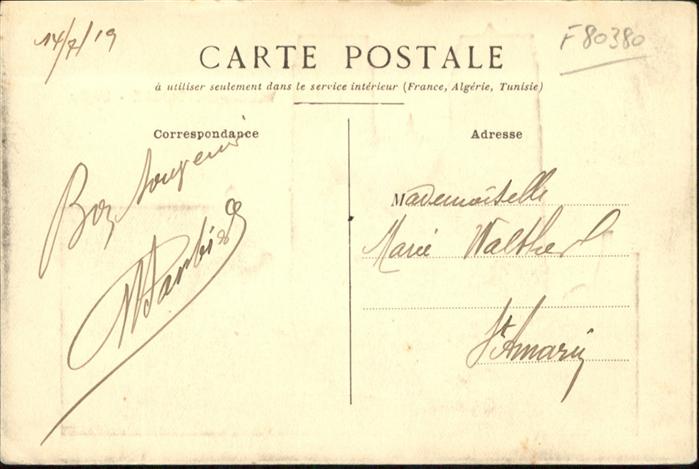 14/7/19
F80380
CARTE POSTALE
à utiliser seulement dans le service intérieur (France, Algérie, Tunisie)
Correspondance
Bon Souvenir
Adresse
Mademoiselle
Marie Walther
St Amarin